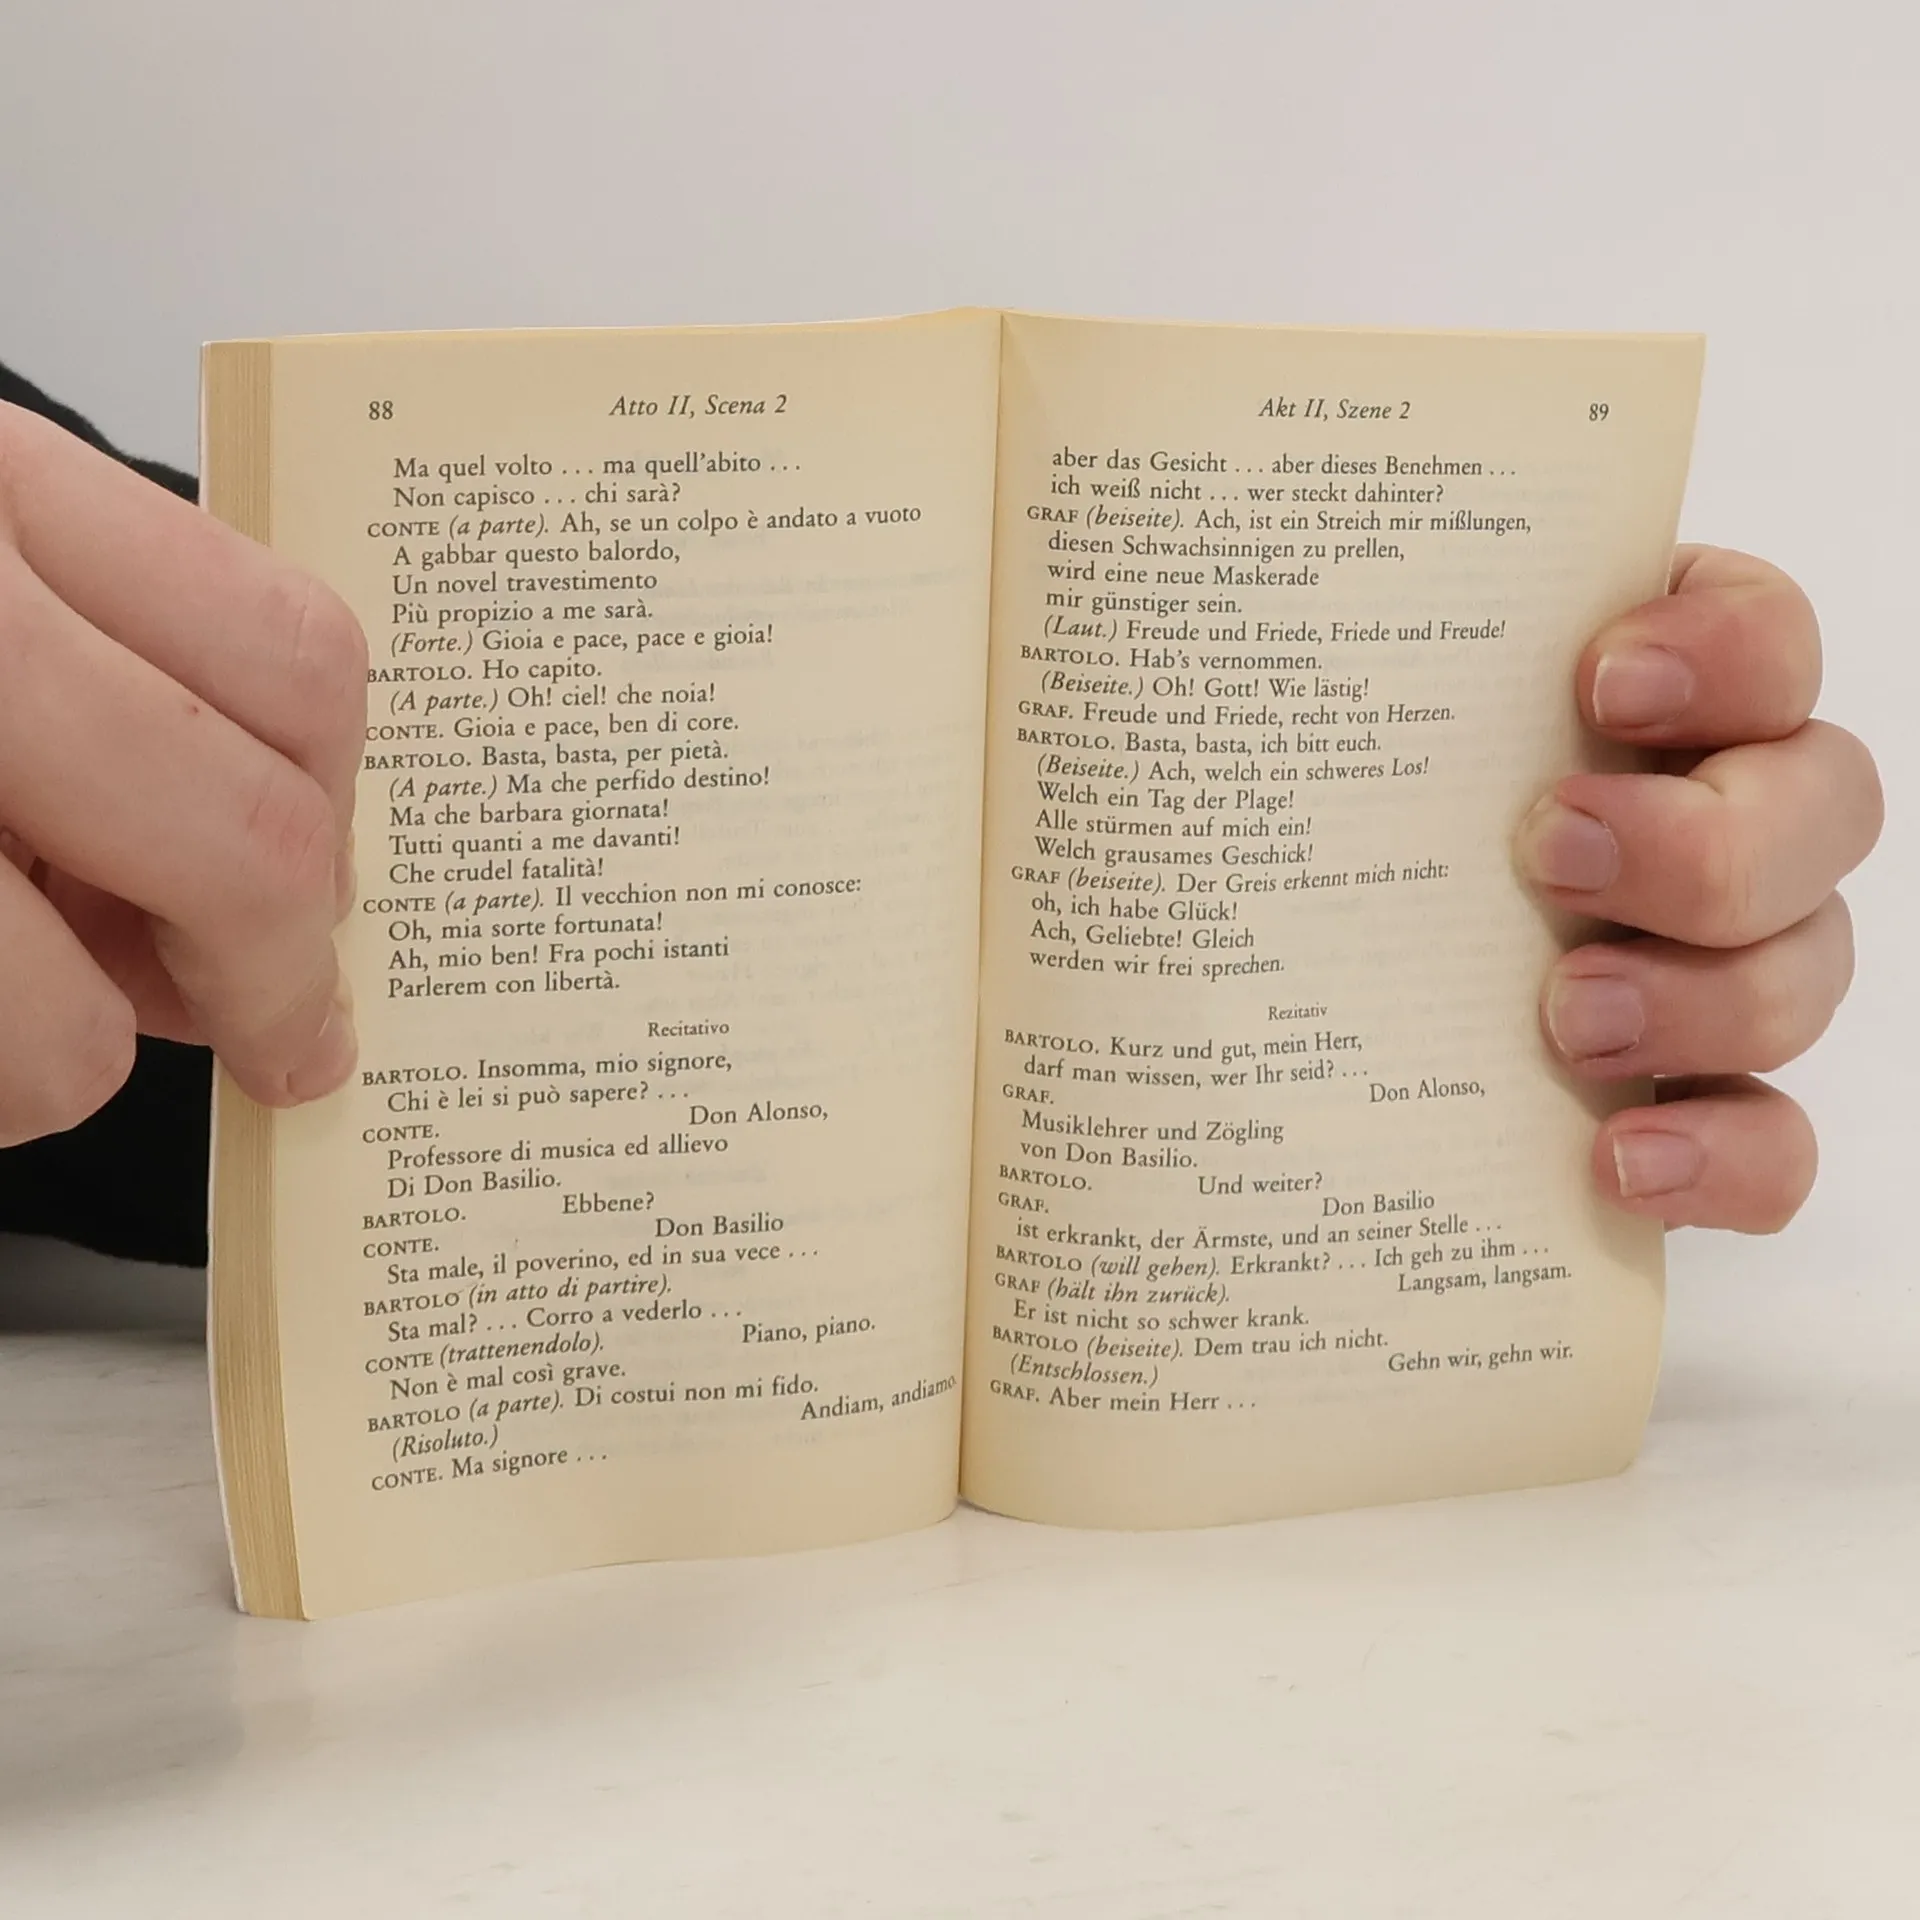 88
Atto II, Scena 2
Ma quel volto . . . ma quell'abito . . .
Non capisco . . . chi sarà?
CONTE (a parte). Ah, se un colpo è andato a vuoto
A gabbar questo balordo,
Un novel travestimento
Più propizio a me sarà.
(Forte.) Gioia e pace, pace e gioia!
BARTOLO. Ho capito.
(A parte.) Oh! ciel! che noia!
CONTE. Gioia e pace, ben di core.
BARTOLO. Basta, basta, per pietà.
(A parte.) Ma che perfido destino!
Ma che barbara giornata!
Tutti quanti a me davanti!
Che crudel fatalità!
CONTE (a parte). Il vecchion non mi conosce:
Oh, mia sorte fortunata!
Ah, mio ben! Fra pochi istanti
Parlerem con libertà.
Recitativo
BARTOLO. Insomma, mio signore,
Chi è lei si può sapere? . . .
CONTE. Don Alonso,
Professore di musica ed allievo
Di Don Basilio.
BARTOLO. Ebbene?
CONTE. Don Basilio
Sta male, il poverino, ed in sua vece . . .
BARTOLO (in atto di partire).
Sta mal? . . . Corro a vederlo . . .
CONTE (trattenendolo). Piano, piano.
Non è mal così grave.
BARTOLO (a parte). Di costui non mi fido.
(Risoluto.) Andiam, andiamo.
CONTE. Ma signore . . .
Akt II, Szene 2
89
aber das Gesicht . . . aber dieses Benehmen . . .
ich weiß nicht . . . wer steckt dahinter?
GRAF (beiseite). Ach, ist ein Streich mir mißlungen,
diesen Schwachsinnigen zu prellen,
wird eine neue Maskerade
mir günstiger sein.
(Laut.) Freude und Friede, Friede und Freude!
BARTOLO. Hab's vernommen.
(Beiseite.) Oh! Gott! Wie lästig!
GRAF. Freude und Friede, recht von Herzen.
BARTOLO. Basta, basta, ich bitt euch.
(Beiseite.) Ach, welch ein schweres Los!
Welch ein Tag der Plage!
Alle stürmen auf mich ein!
Welch grausames Geschick!
GRAF (beiseite). Der Greis erkennt mich nicht:
oh, ich habe Glück!
Ach, Geliebte! Gleich
werden wir frei sprechen.
Rezitativ
BARTOLO. Kurz und gut, mein Herr,
darf man wissen, wer Ihr seid? . . .
GRAF. Don Alonso,
Musiklehrer und Zögling
von Don Basilio.
BARTOLO. Und weiter?
GRAF. Don Basilio
ist erkrankt, der Ärmste, und an seiner Stelle . . .
BARTOLO (will gehen). Erkrankt? . . . Ich geh zu ihm . . .
GRAF (hält ihn zurück). Langsam, langsam.
Er ist nicht so schwer krank.
BARTOLO (beiseite). Dem trau ich nicht.
(Entschlossen.) Gehn wir, gehn wir.
GRAF. Aber mein Herr . . .